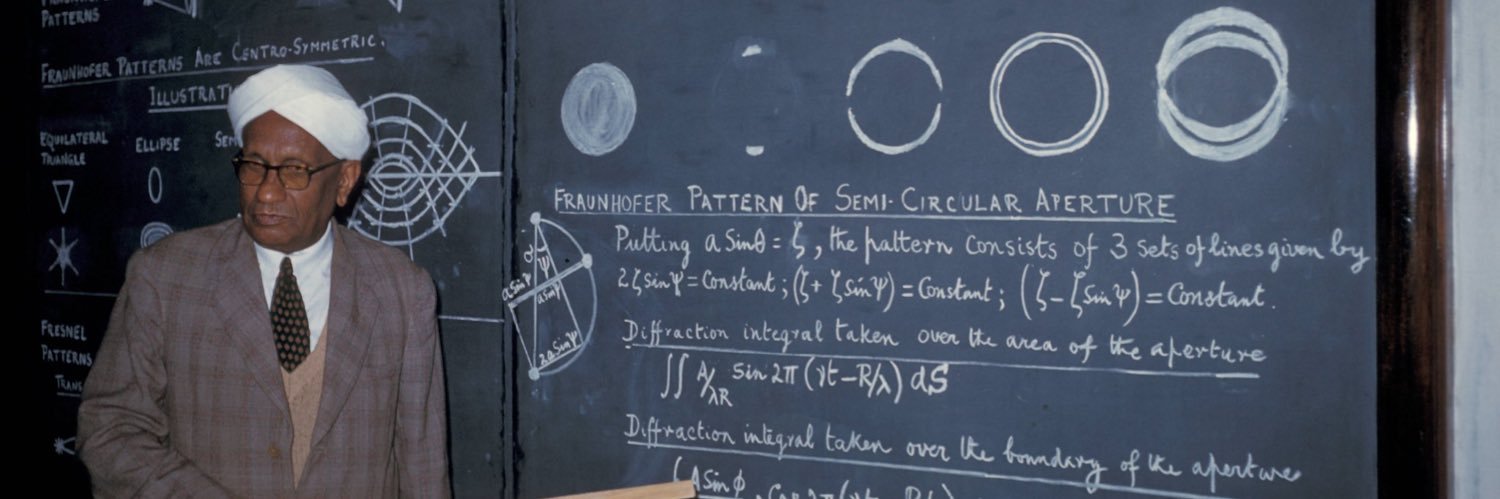 PATTERNS
FRAUNHOFER PATTERNS ARE CENTRO-SYMMETRIC.
EQUILATERAL TRIANGLE
ELLIPSE
FRESNEL
PATTERNS
FRAUNHOFER PATTERN OF SEMI-CIRCULAR APERTURE
Putting a Sinθ = ζ, the pattern consists of 3 sets of lines given by
2ζ sin Ψ = Constant; (ζ + ζ sin Ψ) = Constant; (ζ - ζ Sin Ψ) = Constant.
a Sin Ψ
a Sin Ψ
2a Sin Ψ
Diffraction integral taken over the area of the aperture
∬ A/λR Sin 2π (νt - R/λ) dS
Diffraction integral taken over the boundary of the aperture